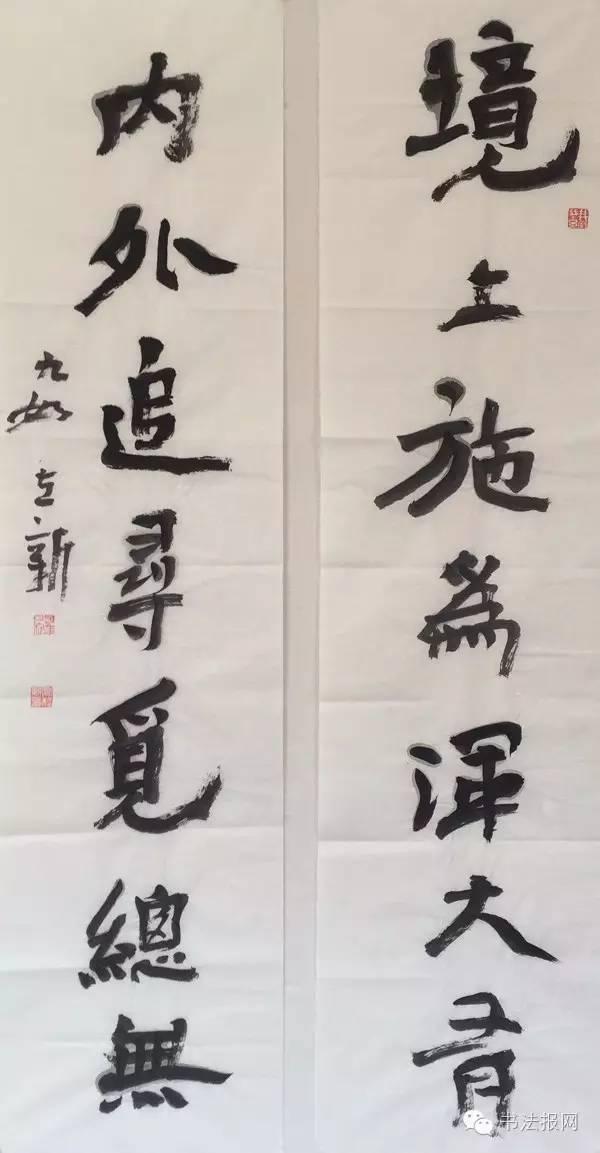 境上施為渾大有
内外追尋覓總無
九如 左新
书法报网